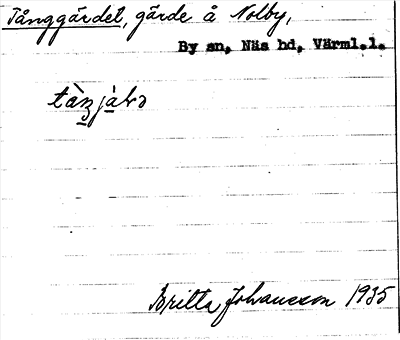 Tånggärdet, gärde å Nolby,
By sn, Näs hd, Värml.l.
Britta Johansson 1935